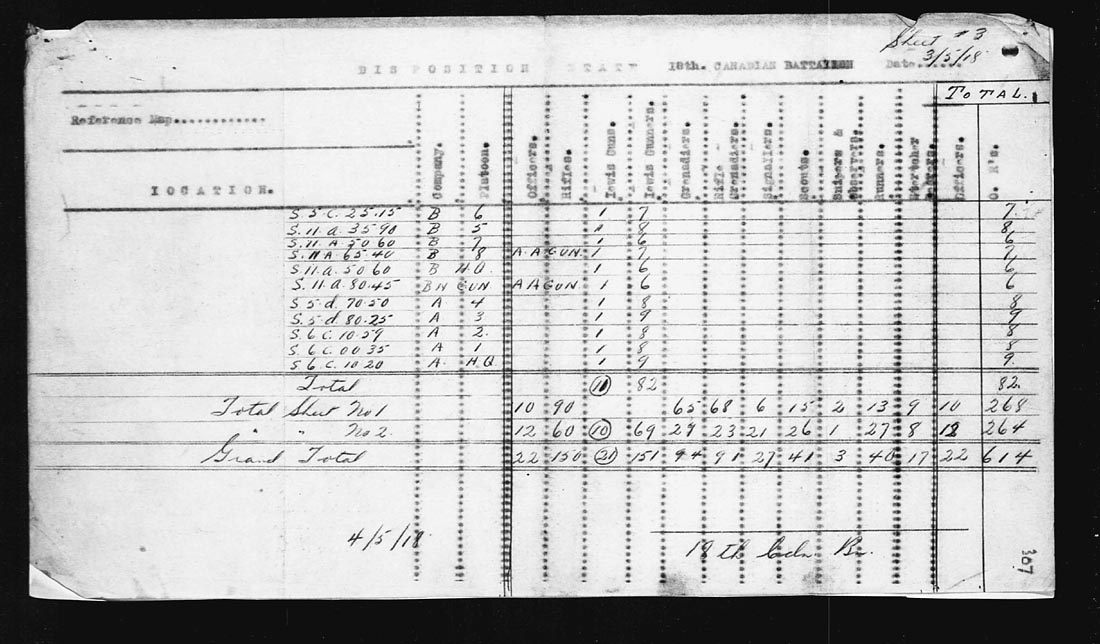 Sheet #3
3/5/18
DISPOSITION STATE 18th. CANADIAN BATTALION Date.....
TOTAL.
Reference Map.............
LOCATION. Company. Platoon. Officers. Rifles. Lewis Guns. Lewis Gunners. Grenadiers. Rifle Grenadiers. Signallers. Scouts. Snipers & Observers. Runners. Stretcher Bearers. Officers. O. R's.
S.5.C.25.15 B 6 1 7 7.
S.11.a.35.90 B 5 1 8 8
S.11.A.50.60 B 7 1 6 6
S.11A.65.40 B 8 A.A GUN. 1 7 7
S.11.a.50.60 B H.Q. 1 6 6
S.11.a.80.45 BN GUN. A A GUN. 1 6 6
S.5.d.70.50 A 4 1 8 8
S.5.d.80.25 A 3 1 9 9
S.6.C.10.59 A 2. 1 8 8
S.6.C.00.35 A 1 1 8 8
S.6.C.10.20 A. H.Q 1 9 9.
Total 11 82 82.
Total Sheet No 1 10 90 65 68 6 15 2 13 9 10 268
" " No 2. 12 60 10 69 29 23 21 26 1 27 8 12 264
Grand Total 22 150 21 151 94 91 27 41 3 40 17 22 614
4/5/18
18th Cdn. Bn.
307